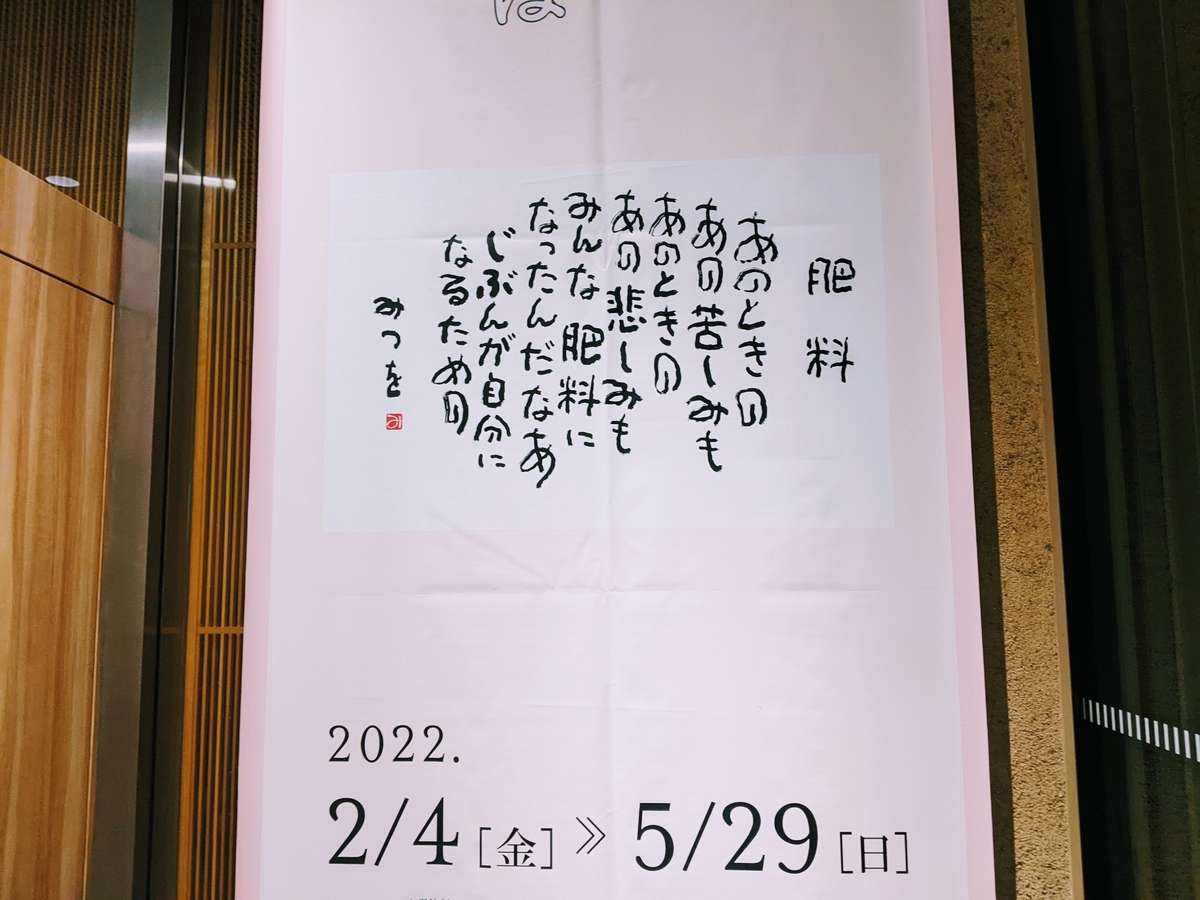 は
肥料
あのときの
あの苦しみも
あのときの
あの悲しみも
みんな肥料に
なったんだなあ
じぶんが自分に
なるための
みつを
み
2022.
2/4[金]》5/29[日]